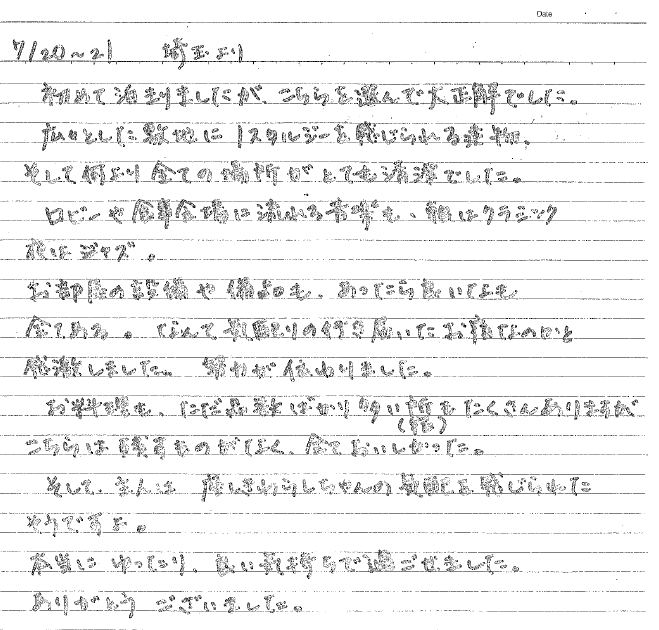 Date
7/20~21 埼玉より
初めて泊まりましたが、こちらを選んで大正解でした。
広々とした敷地にノスタルジーを感じられる建物、
そして何より全ての場所がとても清潔でした。
ロビーや食事会場に流れる音楽も、朝はクラシック
夜はジャズ。
お部屋の設備や備品も、あったら良いなも
全てある。なんて気配りの行き届いたお宿なのかと
感激しました。努力が伝わりました。
お料理も、ただ品数ばかり多い所もたくさんありますが
(他)
こちらは残すものがなく、全ておいしかった。
そして、主人は座しきわらしちゃんの気配を感じられた
そうですよ。
本当にゆったり、良い気持ちで過ごせました。
ありがとうございました。